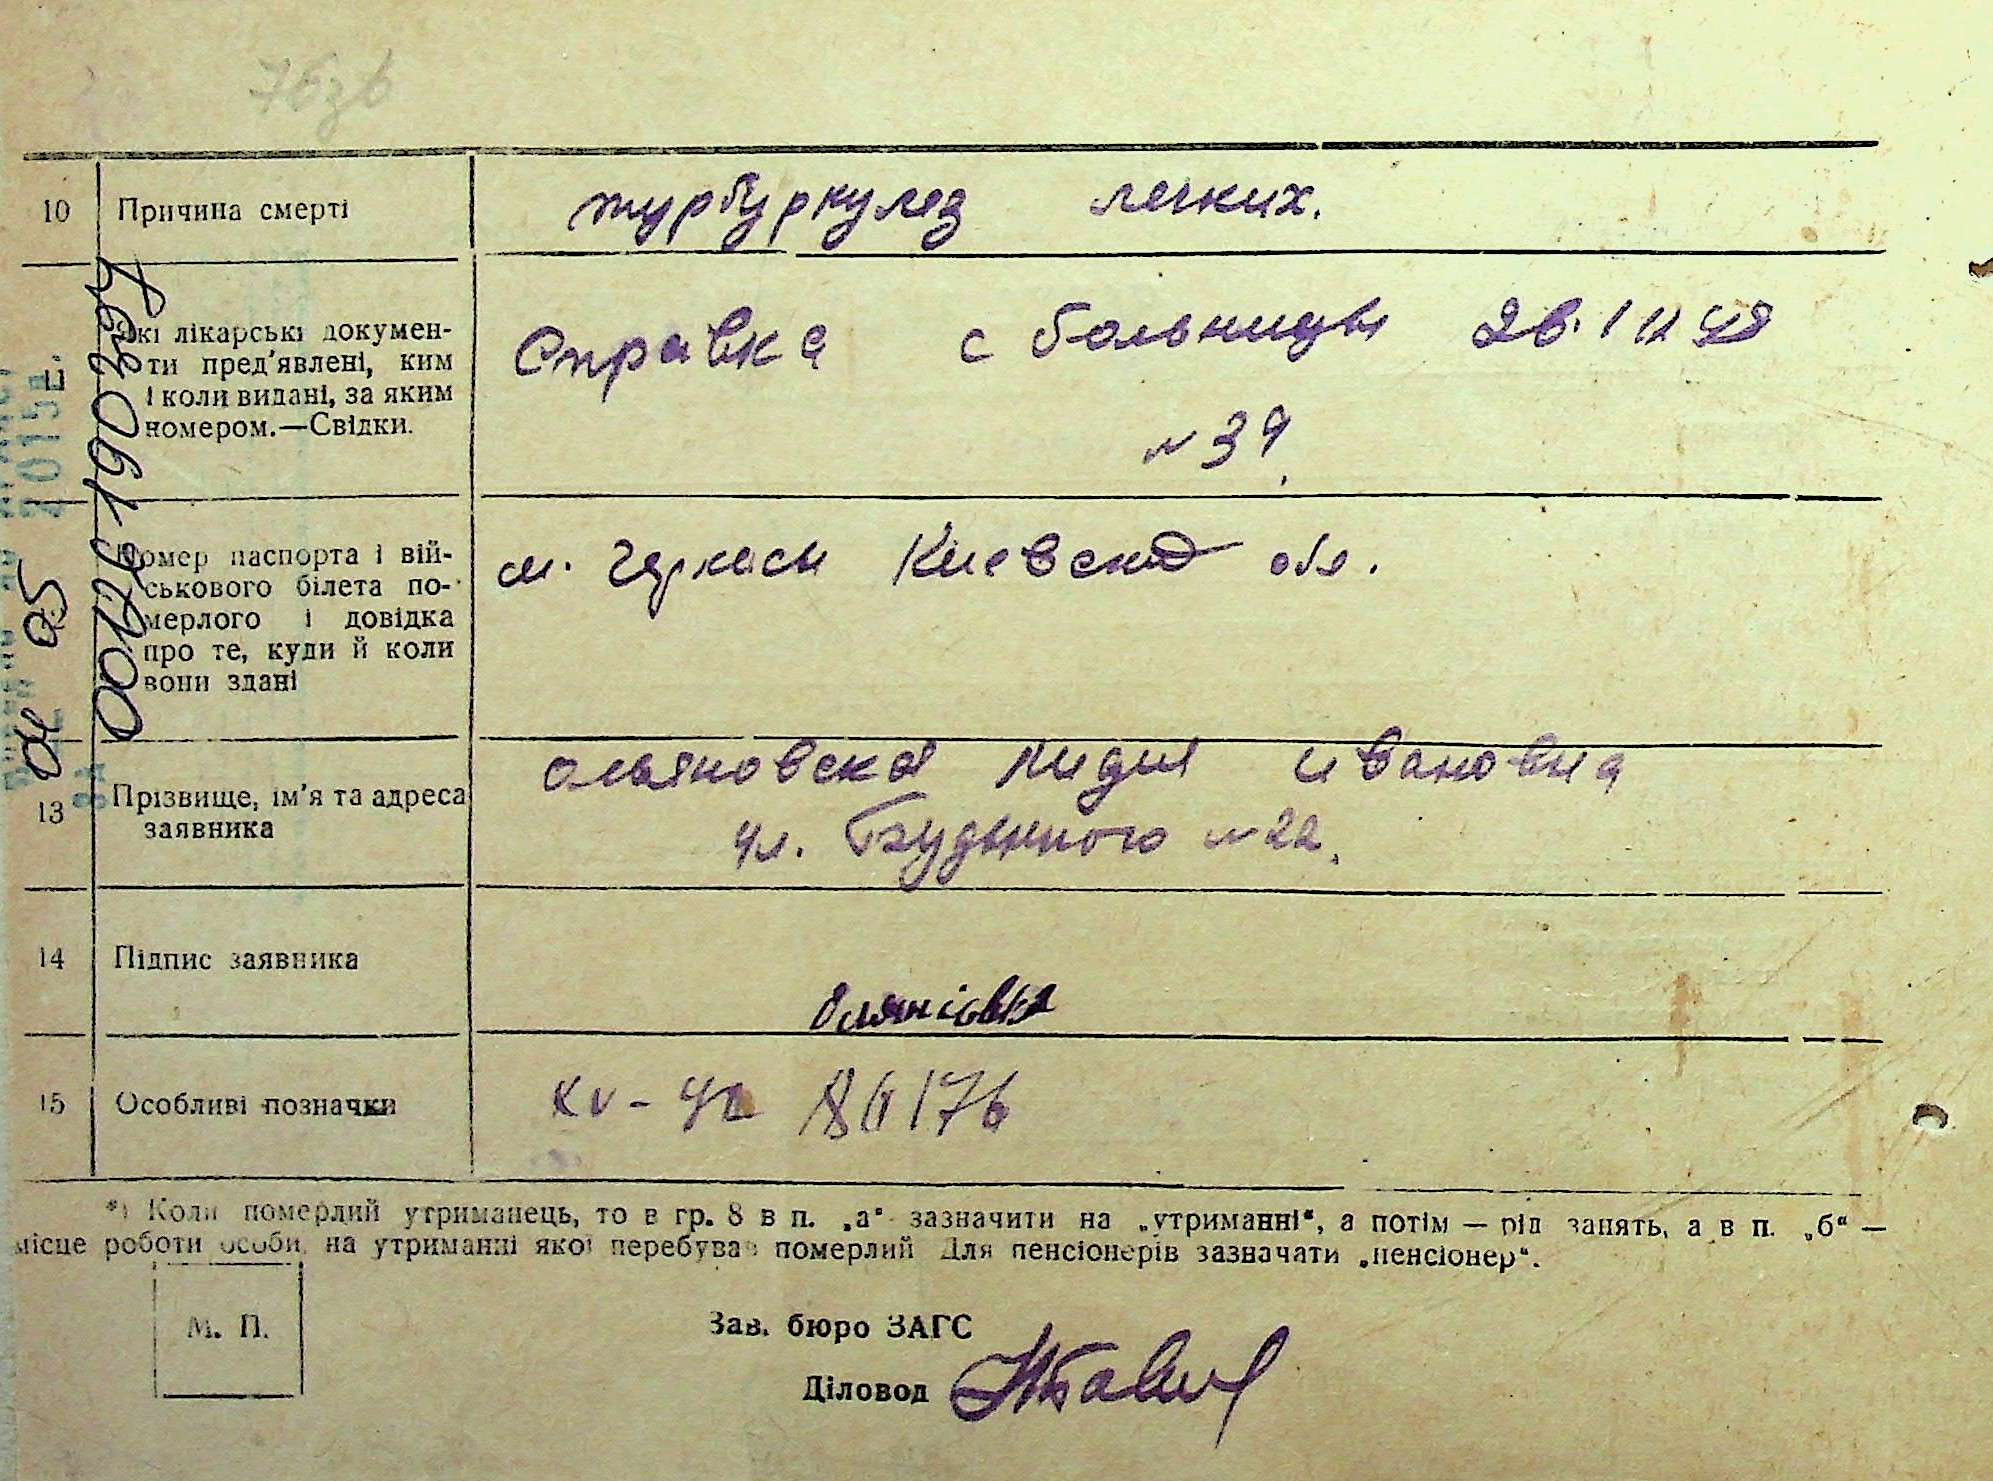 10 Причина смерті турбуркулез легких.
Які лікарські докумен-
ти пред'явлені, ким
і коли видані, за яким
номером.—Свідки.
Справка с больницы
№ 39
Номер паспорта і вій-
ськового білета по-
мерлого і довідка
про те, куди й коли
вони здані
м. Черкасы Киевской обл.
13 Прізвище, ім'я та адреса
заявника
Ольяновская Лидия Ивановна
ул. Будьнного № 22.
14 Підпис заявника
15 Особливі позначки
*) Коли померлий утриманець, то в гр. 8 в п. „а“ зазначити на „утриманні“, а потім — рід занять, а в п. „б“ —
місце роботи особи, на утриманні якої перебував померлий Для пенсіонерів зазначати „пенсіонер“.
М. П.
Зав. бюро ЗАГС
Діловод
00126190397